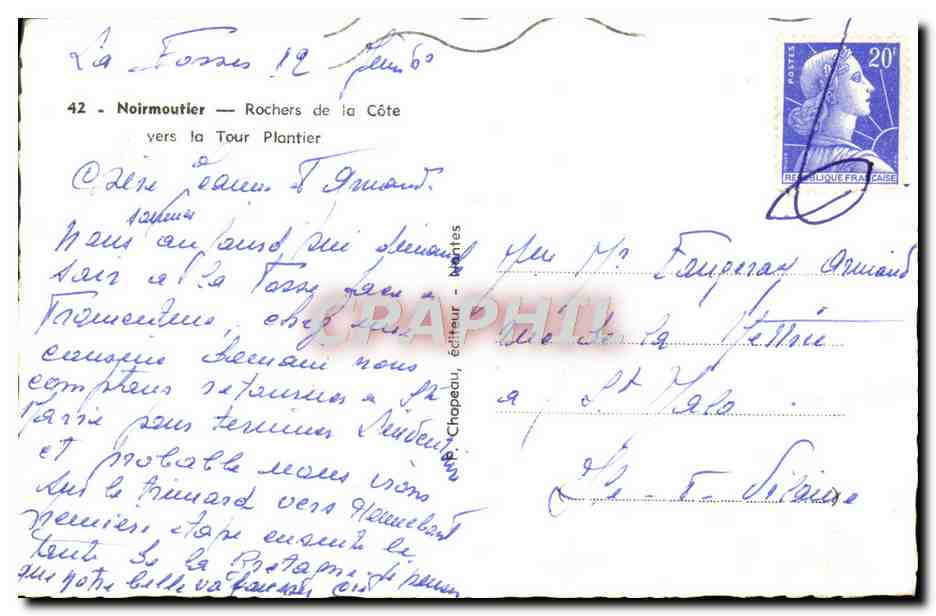 La Fosse 12 Juin 60
42 - Noirmoutier — Rochers de la Côte
vers la Tour Plantier
Chère Jeanne et Armand.
Nous sommes aujourd'hui dimanche
soir a La Fosse face a
Fromentine, chez une
cousine demain nous
comptons retourner a Ste
Marie pour terminer
et probable nous irons
sur le trimard vers Hennebont
première étape ensuite le
tante de la Bretagne
que notre belle va
P. Chapeau, éditeur - Nantes
CPAPHIL
POSTES
20F
REPUBLIQUE FRANÇAISE
Mme Mr Faugeras Armand
rue de la Mettrie
a St Malo
Ile-et-Vilaine